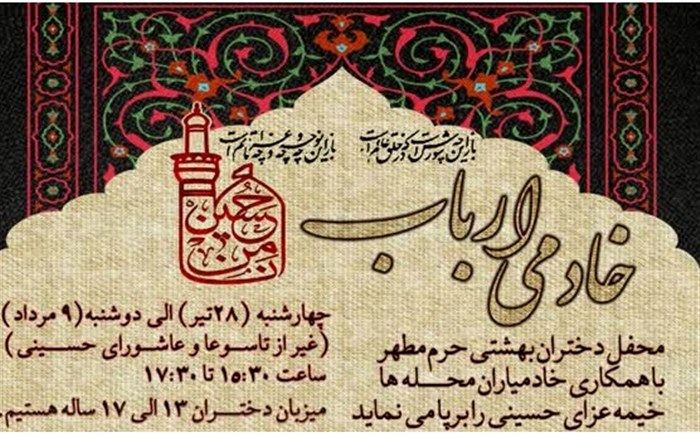 باز این چه شورش است که در خلق عالم است
باز این چه نوحه و چه عزا و چه ماتم است
حسین
منی
خادمی ارباب
محفل دختران بهشتی حرم مطهر
با همکاری خادمیاران محله ها
خیمه عزای حسینی را برپا می نماید
چهارشنبه (۲۸تیر) الی دوشنبه(۹ مرداد)
(غیر از تاسوعا و عاشورای حسینی)
ساعت ۱۵:۳۰ تا ۱۷:۳۰
میزبان دختران ۱۳ الی ۱۷ ساله هستیم.